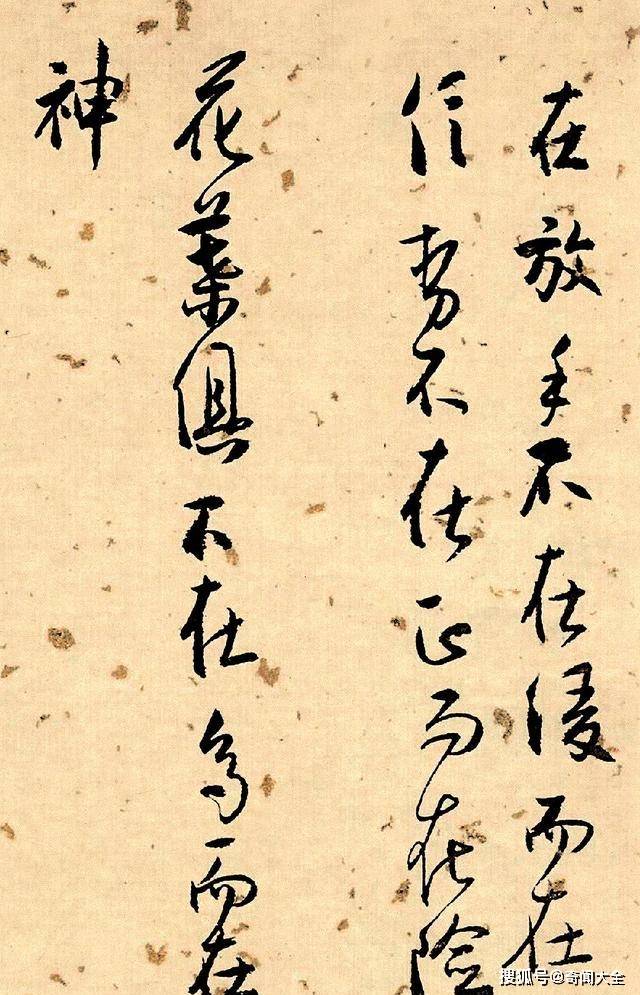 在放手不在緩而在
信勢不在正而在險
花葉俱不在多而在
神
搜狐号@奇闻大全